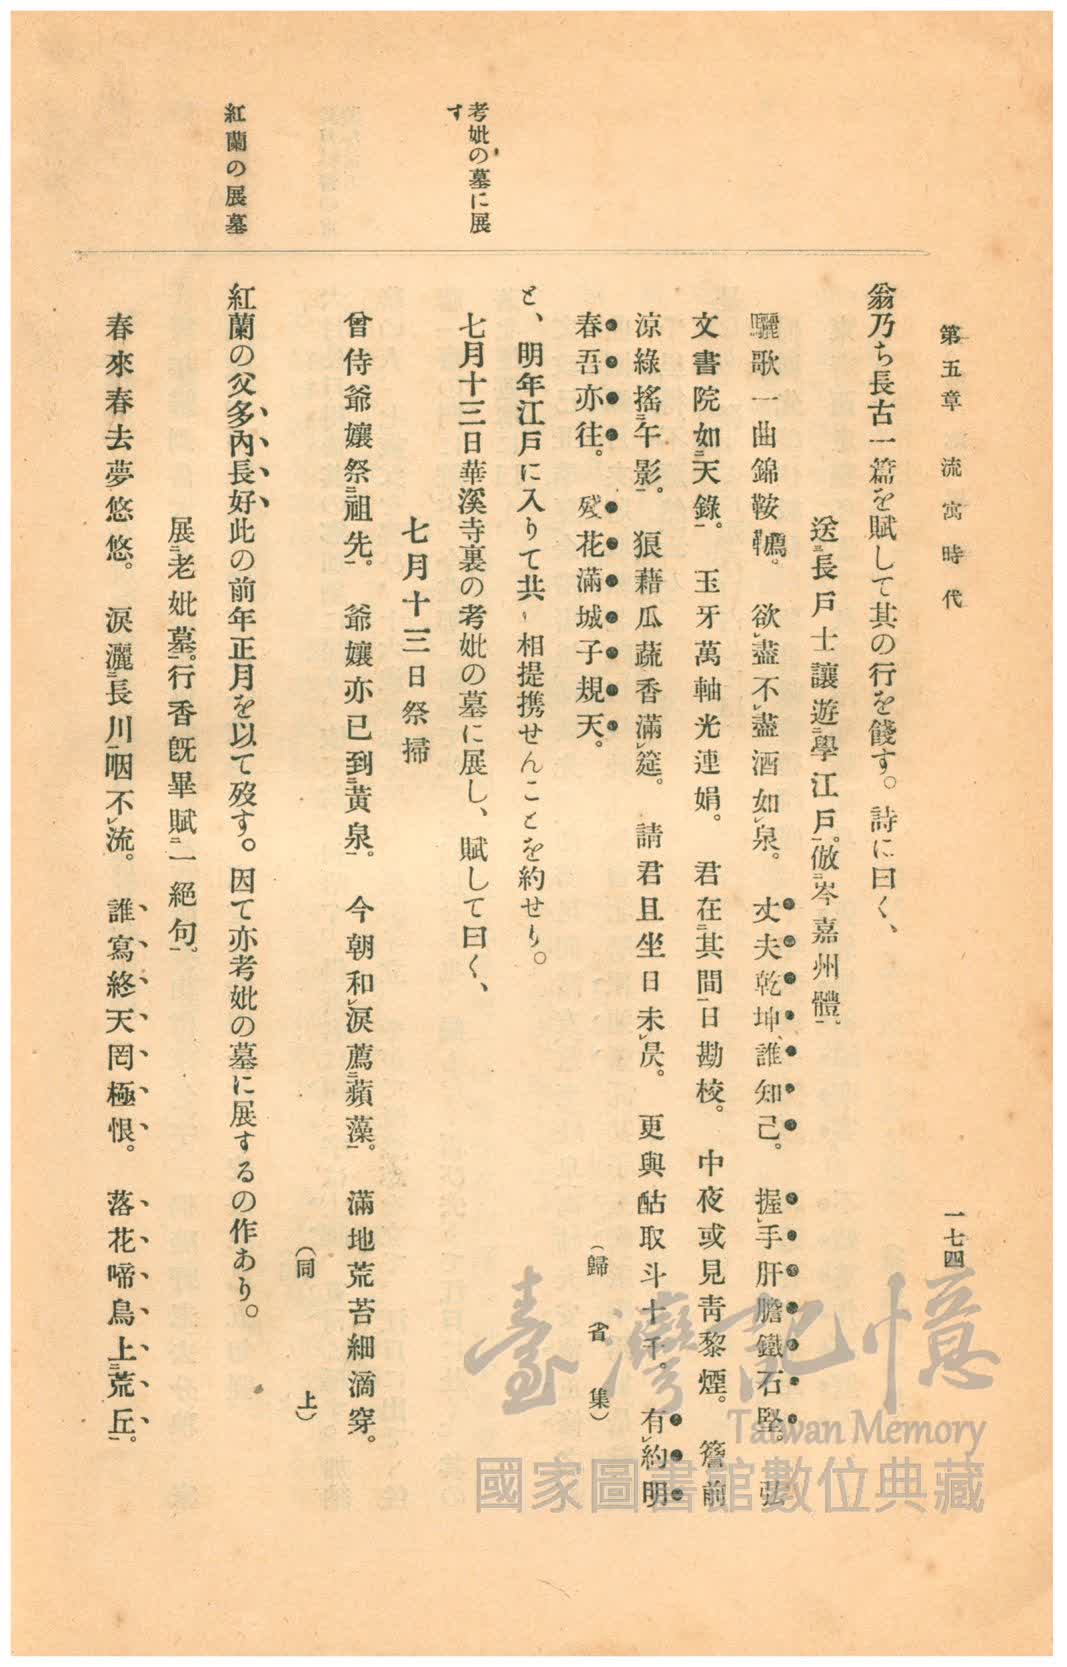 第五章 流寓時代 一七四
翁乃ち長古一篇を賦して其の行を餞す。詩に曰く、
送二長戸士讓遊二學江戸一。倣二岑嘉州體一。
驪歌一曲錦鞍韉。欲レ盡不レ盡酒如レ泉。丈夫乾坤誰知己。握レ手肝膽鐵石堅。弘
文書院如二天錄一。玉牙萬軸光連娟。君在二其間一日勘校。中夜或見靑黎煙。簷前
涼綠搖二午影一。狼藉瓜蔬香滿レ筵。請君且坐日未レ昃。更與酤取斗十千。有レ約明
春吾亦往。殘花滿城子規天。 (歸省集)
と、明年江戸に入りて共に相提携せんことを約せり。
考妣の墓に展
す
七月十三日華溪寺裏の考妣の墓に展し、賦して曰く、
七月十三日祭掃
曾侍爺孃祭二祖先一。爺孃亦已到二黃泉一。今朝和レ淚薦二蘋藻一。滿地荒苔細滴穿。
(同 上)
紅蘭の展墓
紅蘭の父多內長好此の前年正月を以て歿す。因て亦考妣の墓に展するの作あり。
展二老妣墓一。行香旣畢賦二一絕句一。
春來春去夢悠悠。淚灑二長川一咽不レ流。誰寫終天罔極恨。落花啼鳥上二荒丘一。
臺灣記憶
Taiwan Memory
國家圖書館數位典藏